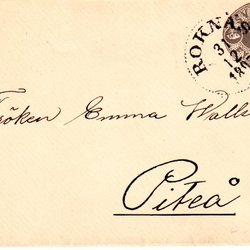 ROKNÄ
31
12
189
röken Emma Walls
Piteå